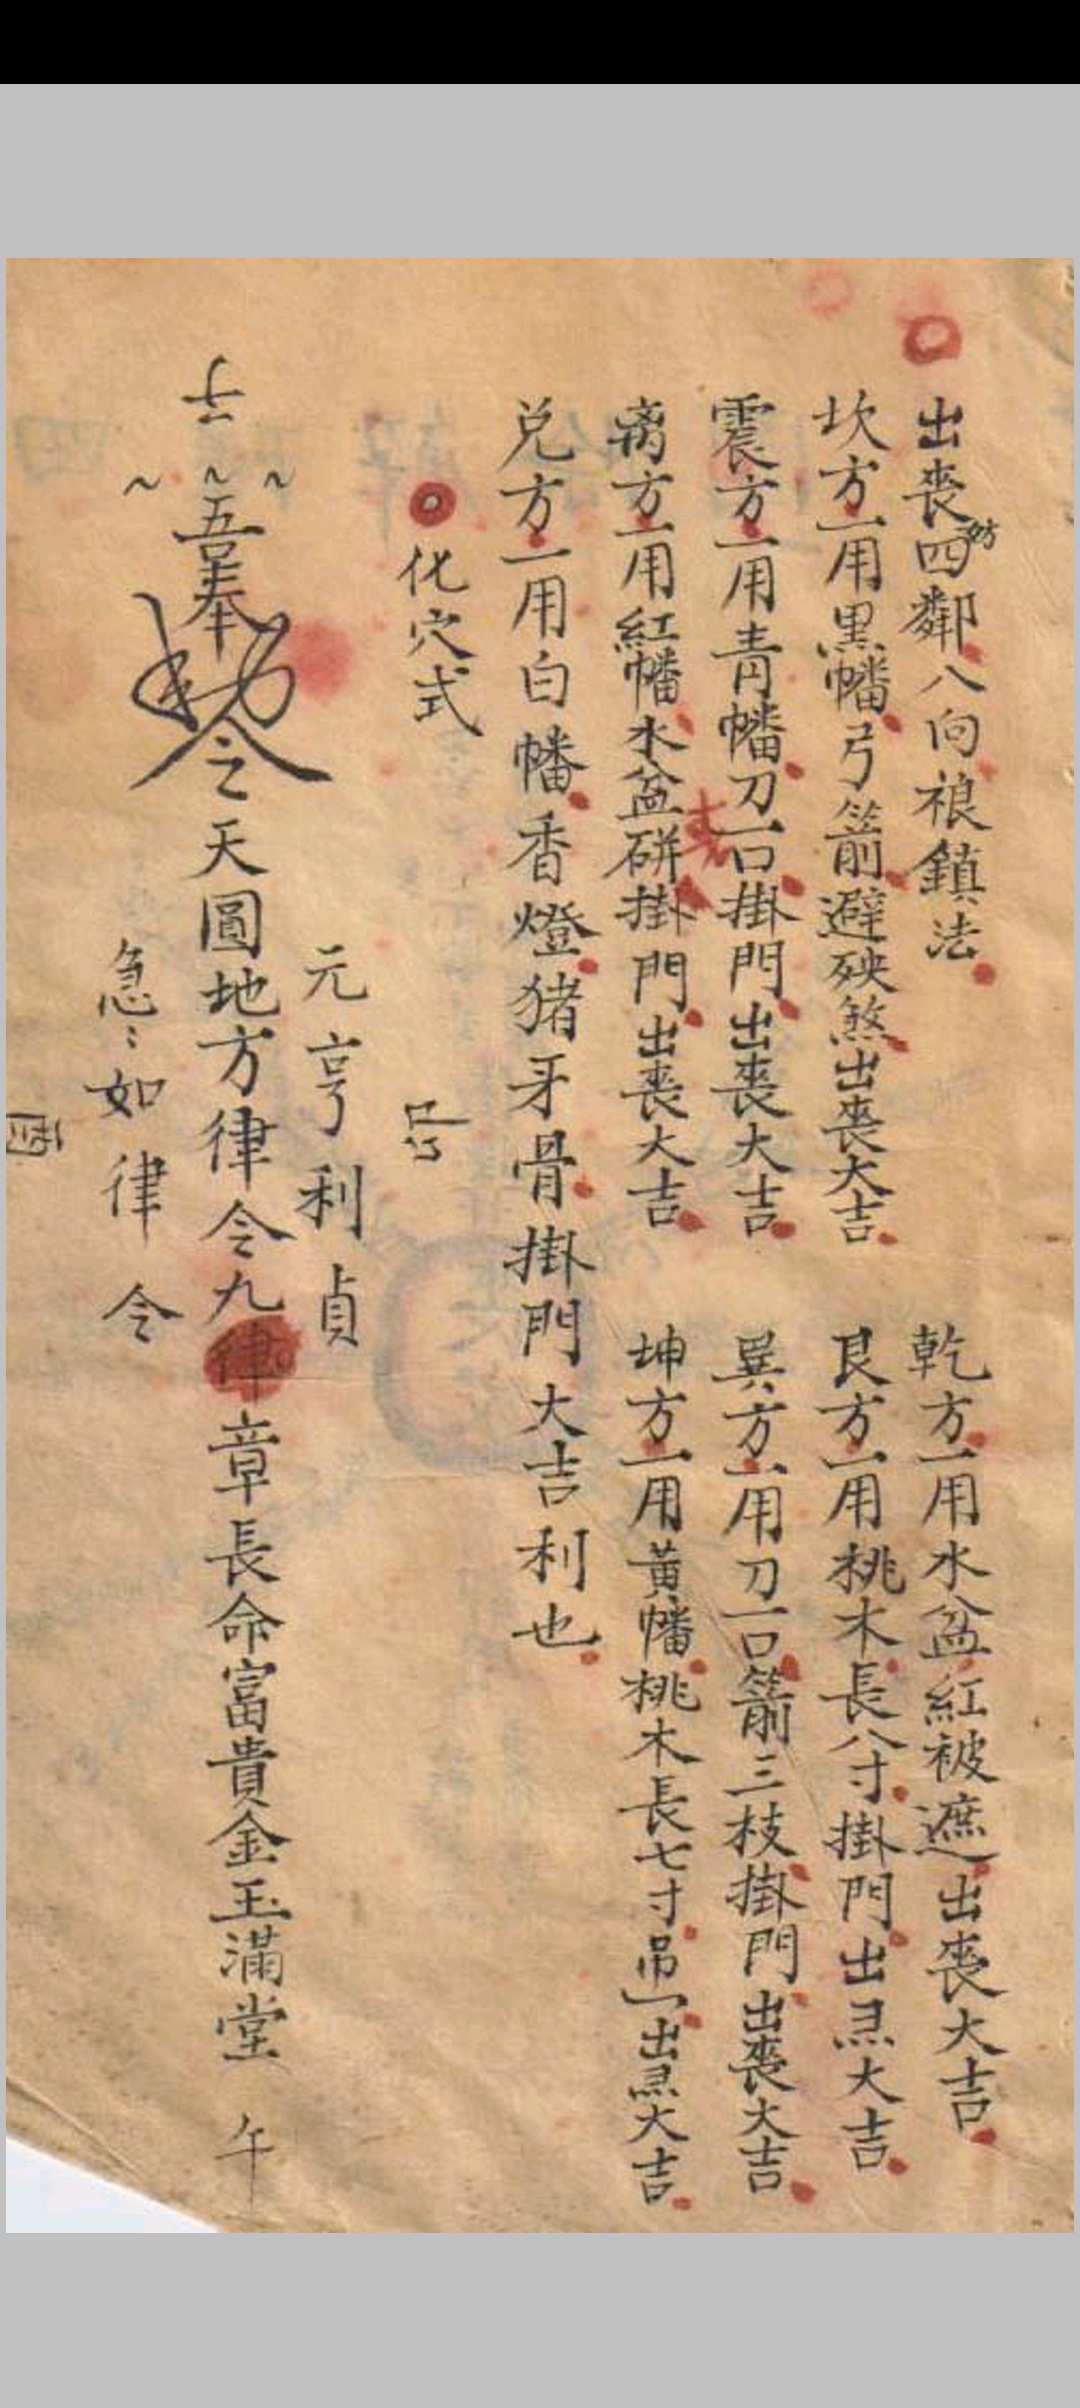 出喪妨四鄰八向裉鎮法
乾方一用水盆紅被遮出喪大吉
坎方一用黑幡弓箭避殃煞出喪大吉
艮方一用桃木長八寸掛門出灵大吉
震方一用青幡刀一口掛門出喪大吉
巽方一用刀一口箭三枝掛門出喪大吉
离方一用紅幡水盆硑掛門出喪大吉
坤方一用黃幡桃木長七寸吊一出灵大吉
兑方一用白幡香燈猪牙骨掛門大吉利也
化穴式
卯
元亨利貞
子
五奉勅令之天圓地方律令九律章長命富貴金玉滿堂 午
急〻如律令
酉